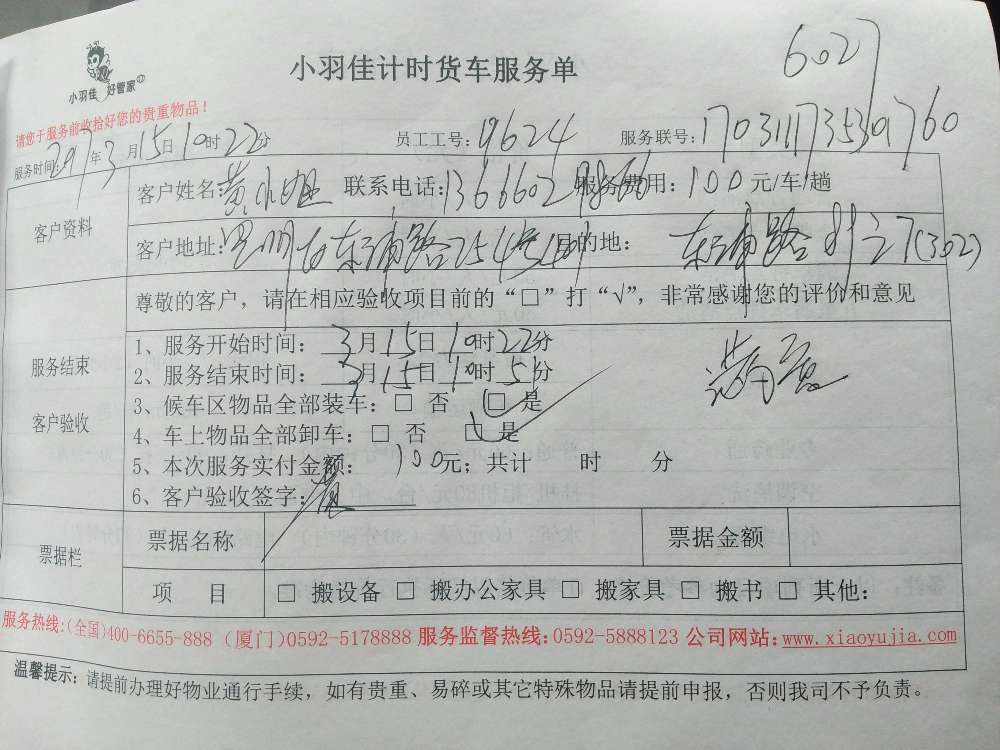 小羽佳 好管家
小羽佳计时货车服务单
602
请您于服务前收拾好您的贵重物品！
服务时间: 2017年3月15日10时22分 员工工号: 19624 服务联号:
客户资料
客户姓名: 黄小姐 联系电话: 服务费用: 100元/车/趟
客户地址: 东浦路254号 目的地: 东浦路 (302)
尊敬的客户，请在相应验收项目前的“□”打“√”，非常感谢您的评价和意见
服务结束
客户验收
1、服务开始时间: 3月15日10时22分
2、服务结束时间: 3月15日10时51分
满意
3、候车区物品全部装车: □ 否 □ 是
4、车上物品全部卸车: □ 否 □ 是
5、本次服务实付金额: 100元; 共计 时 分
6、客户验收签字: 黄
票据栏
票据名称 票据金额
项 目 □ 搬设备 □ 搬办公家具 □ 搬家具 □ 搬书 □ 其他:
服务热线:(全国)400-6655-888 (厦门)0592-5178888 服务监督热线:0592-5888123 公司网站:www.xiaoyujia.com
温馨提示: 请提前办理好物业通行手续，如有贵重、易碎或其它特殊物品请提前申报，否则我司不予负责。